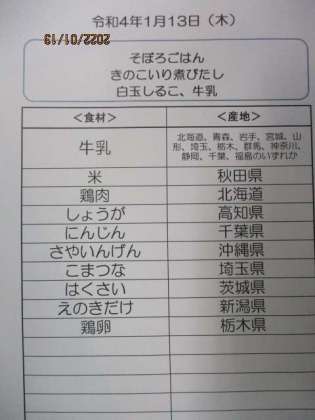 令和4年1月13日（木）
2022/01/19
そぼろごはん
きのこいり煮びたし
白玉しるこ、牛乳
＜食材＞ ＜産地＞
牛乳 北海道、青森、岩手、宮城、山
形、埼玉、栃木、群馬、神奈川、
静岡、千葉、福島のいずれか
米 秋田県
鶏肉 北海道
しょうが 高知県
にんじん 千葉県
さやいんげん 沖縄県
こまつな 埼玉県
はくさい 茨城県
えのきだけ 新潟県
鶏卵 栃木県